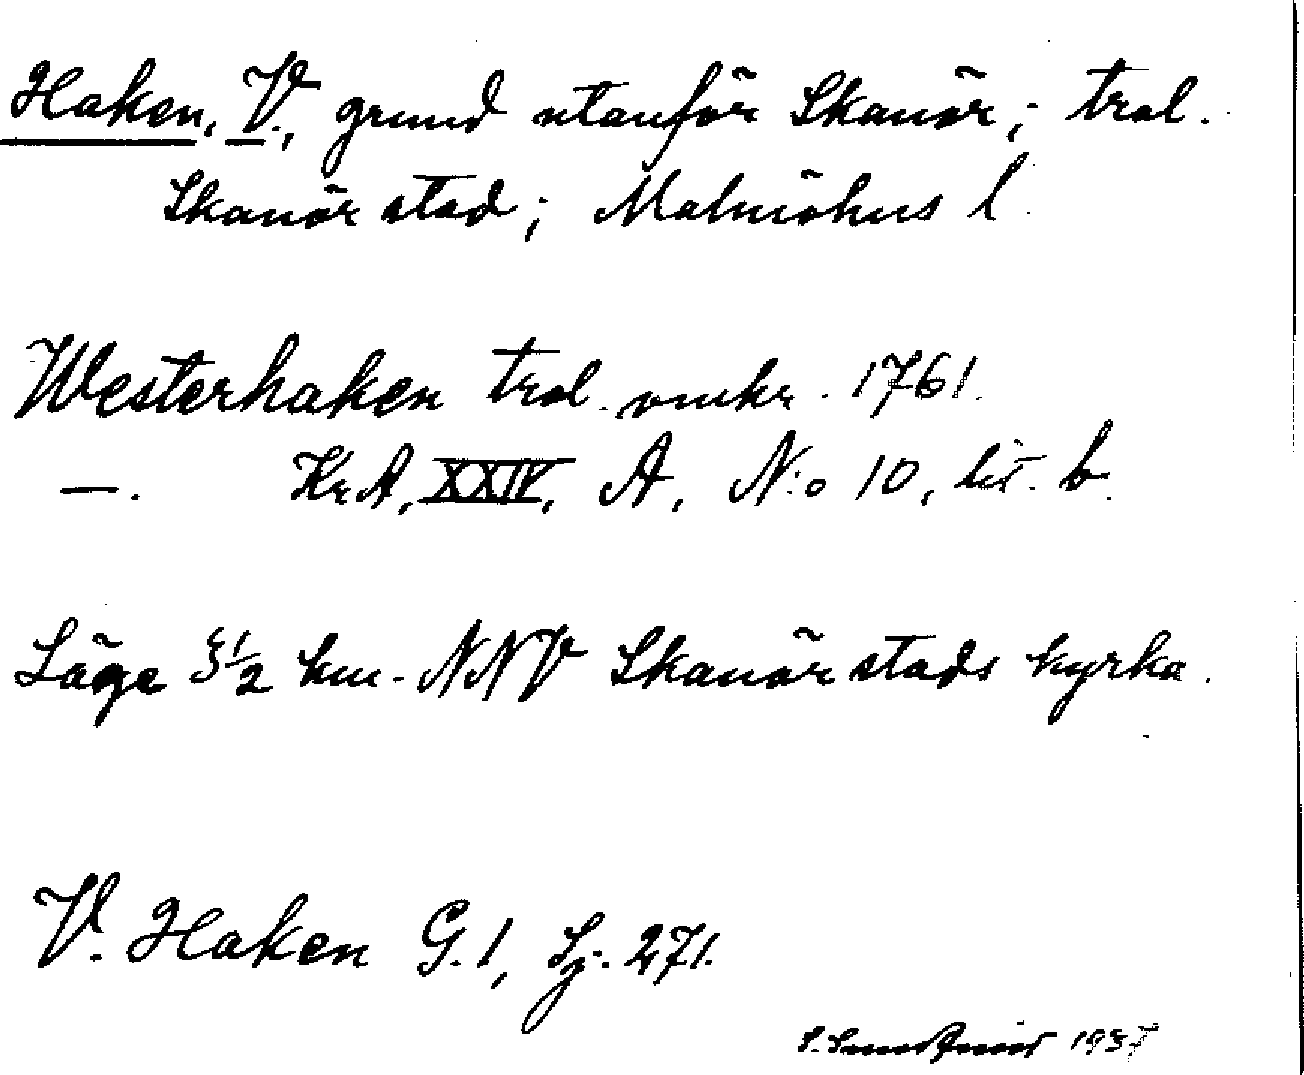 Haken, V., grund utanför Skanör; trol.
Skanör stad; Malmöhus l.
Westerhaken trol. omkr. 1761.
—. KrA, XXIV, A, N:o 10, lit. b.
Läge 3½ km. NNV Skanör stads kyrka.
V. Haken G. 1, Sj. 271.
1937